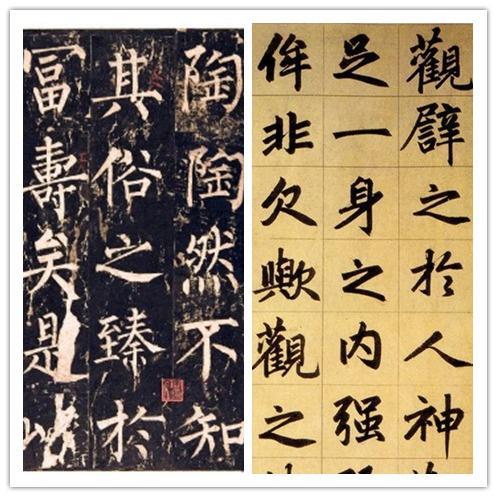 陶陶然不知
其俗之臻於
冨壽矣是
觀譬之於人神
足一身之内强
侔非欠歟觀之